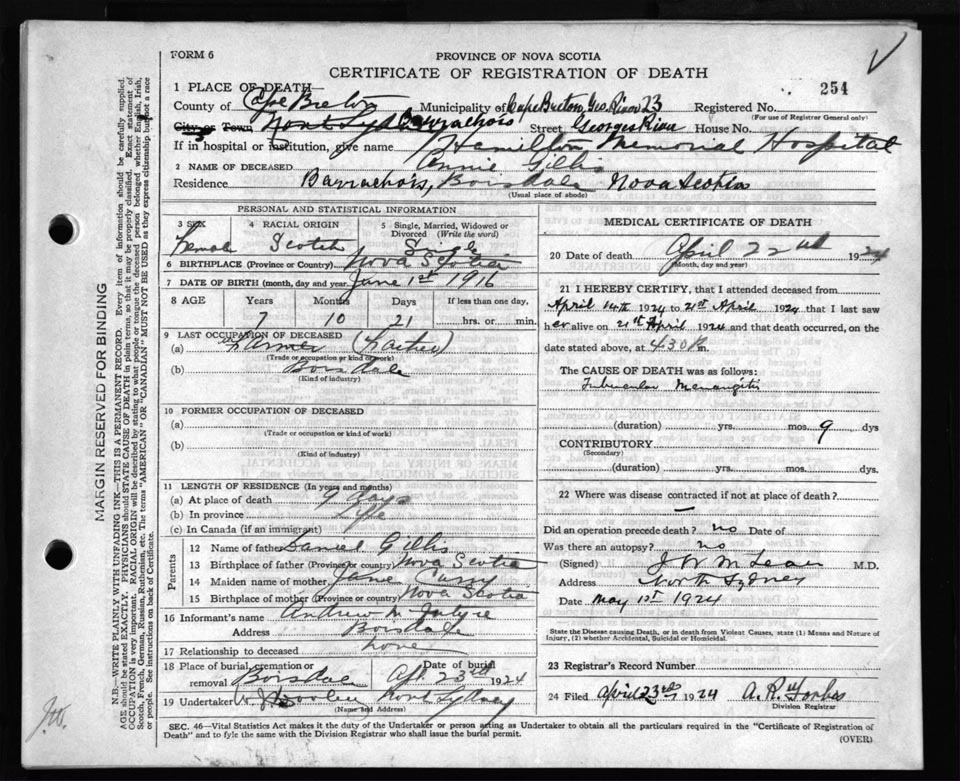 FORM 6
PROVINCE OF NOVA SCOTIA
CERTIFICATE OF REGISTRATION OF DEATH
254
1 PLACE OF DEATH—
County of Cape Breton Municipality of Cape Breton, Geo. River 23 Registered No.
(For use of Registrar General only)
City or Town North Sydney Barrachois Street Georges River House No.
If in hospital or institution, give name Hamilton Memorial Hospital
2 NAME OF DECEASED Annie Gillis
Residence Barrachois, Boisdale Nova Scotia
(Usual place of abode)
PERSONAL AND STATISTICAL INFORMATION
3 SEX
Female
4 RACIAL ORIGIN
Scotch
5 Single, Married, Widowed or Divorced (Write the word)
Single
6 BIRTHPLACE (Province or Country) Nova Scotia
7 DATE OF BIRTH (month, day and year) June 1st 1916
8 AGE Years Months Days If less than one day,
7 10 21 hrs. or min.
9 LAST OCCUPATION OF DECEASED
(a) Farmer (Father)
(Trade or occupation or kind of work)
(b) Boisdale
(Kind of industry)
10 FORMER OCCUPATION OF DECEASED
(a)
(Trade or occupation or kind of work)
(b)
(Kind of industry)
11 LENGTH OF RESIDENCE (In years and months)
(a) At place of death 9 days
(b) In province Life
(c) In Canada (if an immigrant)
Parents
12 Name of father Daniel Gillis
13 Birthplace of father (Province or country) Nova Scotia
14 Maiden name of mother Jane Curry
15 Birthplace of mother (Province or country) Nova Scotia
16 Informant's name Andrew McIntyre
Address Boisdale
17 Relationship to deceased none
18 Place of burial, cremation or removal Boisdale
Date of burial Apl. 23rd 1924
19 Undertaker W. J. Dooley North Sydney
(Name and Address)
MEDICAL CERTIFICATE OF DEATH
20 Date of death April 22nd 1924
(Month, day and year)
21 I HEREBY CERTIFY, that I attended deceased from
April 14th 1924 to 21st April 1924 that I last saw
her alive on 21st April 1924 and that death occurred, on the
date stated above, at 4.30 P.m.
The CAUSE OF DEATH was as follows:
Tubercular Meningitis
(duration) yrs. mos. 9 dys
CONTRIBUTORY
(Secondary)
(duration) yrs. mos. dys.
22 Where was disease contracted if not at place of death?
—
Did an operation precede death? no Date of
Was there an autopsy? no
(Signed) J W McLean M.D.
Address North Sydney
Date May 1st 1924
State the Disease causing Death, or in death from Violent Causes, state (1) Means and Nature of
Injury, (2) whether Accidental, Suicidal or Homicidal.
23 Registrar's Record Number
24 Filed April 23rd 1924 A. R. Forbes
Division Registrar
SEC. 46—Vital Statistics Act makes it the duty of the Undertaker or person acting as Undertaker to obtain all the particulars required in the "Certificate of Registration of
Death" and to fyle the same with the Division Registrar who shall issue the burial permit.
(OVER)
MARGIN RESERVED FOR BINDING
N.B.—WRITE PLAINLY WITH UNFADING INK—THIS IS A PERMANENT RECORD. Every item of information should be carefully supplied.
AGE should be stated EXACTLY. PHYSICIANS should STATE CAUSE OF DEATH in plain terms, so that it may be properly classified. Exact statement of
OCCUPATION is very important. RACIAL ORIGIN will be described by stating to what people or tongue the deceased person belonged whether English, Irish,
Scotch, French, German, Russian, Ruthenian, etc. The terms "AMERICAN" OR "CANADIAN" MUST NOT BE USED as they express citizenship but not a race
or people. See instructions on back of Certificate.